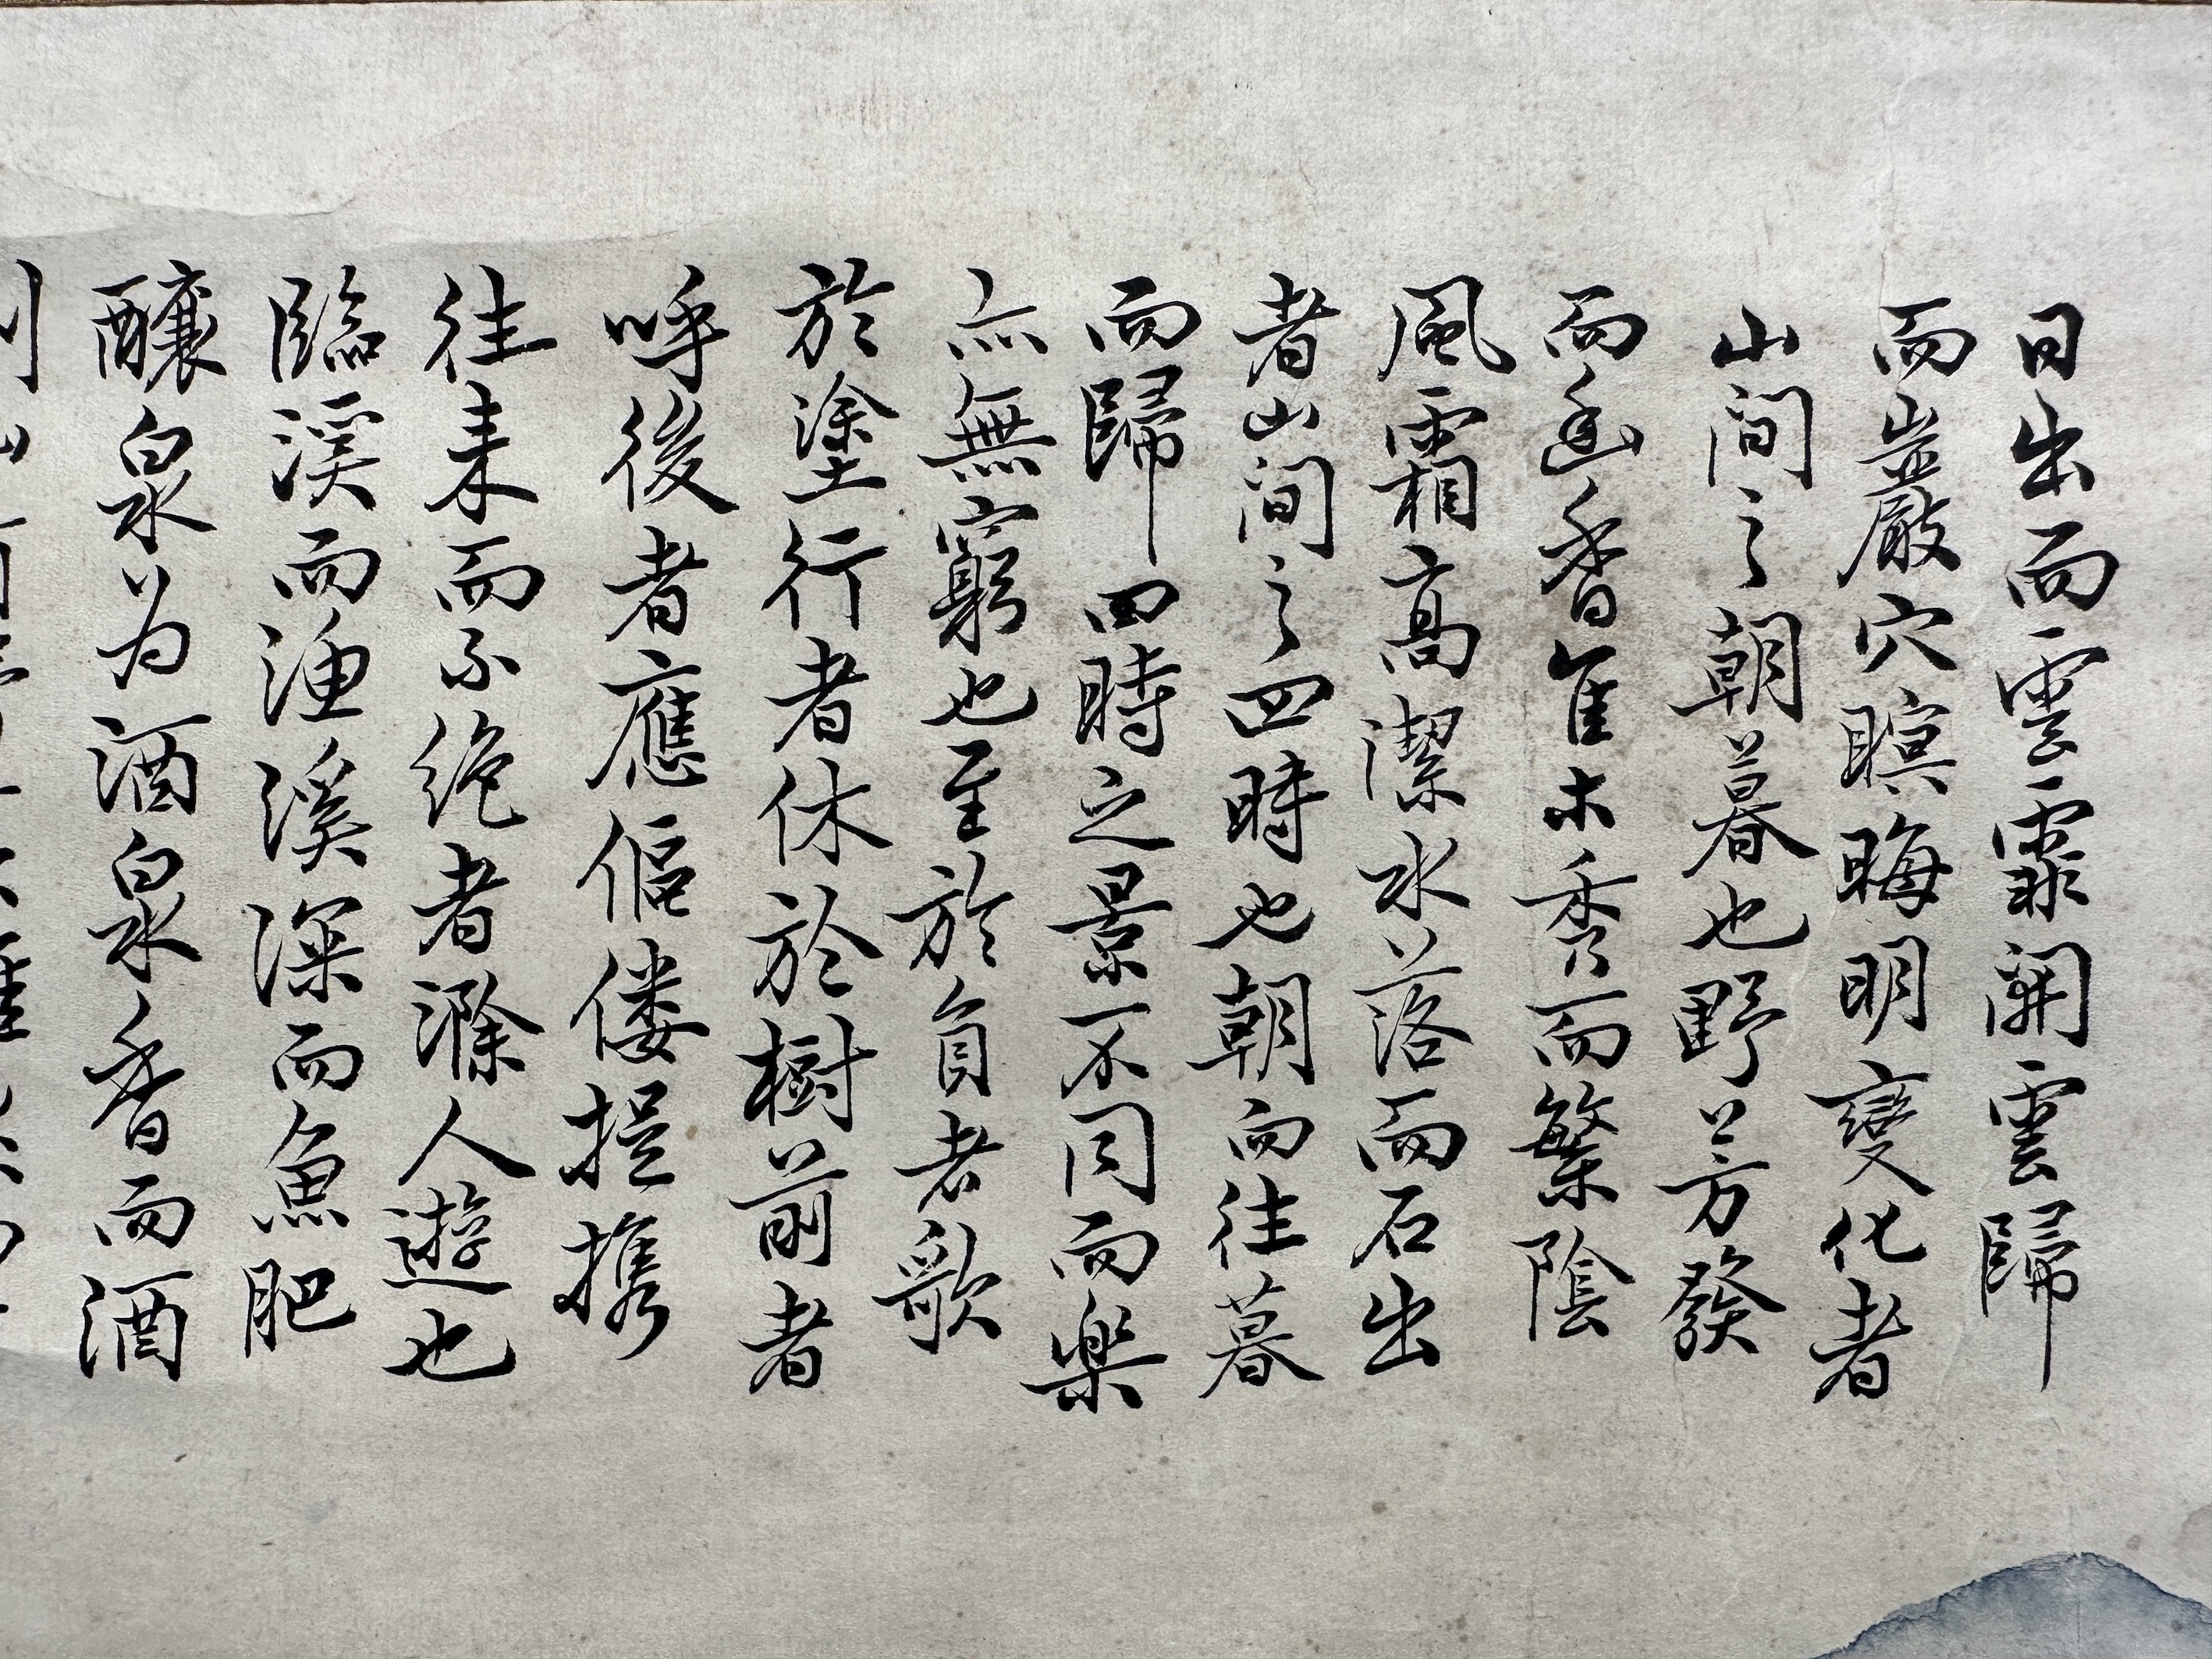 日出而雲霏開雲歸
而巖穴暝晦明變化者
山間之朝暮也野芳發
而幽香佳木秀而繁陰
風霜高潔水落而石出
者山間之四時也朝而往暮
而歸四時之景不同而樂
亦無窮也至於負者歌
於塗行者休於樹前者
呼後者應傴僂提携
往来而不絶者滁人遊也
臨溪而漁溪深而魚肥
釀泉为酒泉香而酒